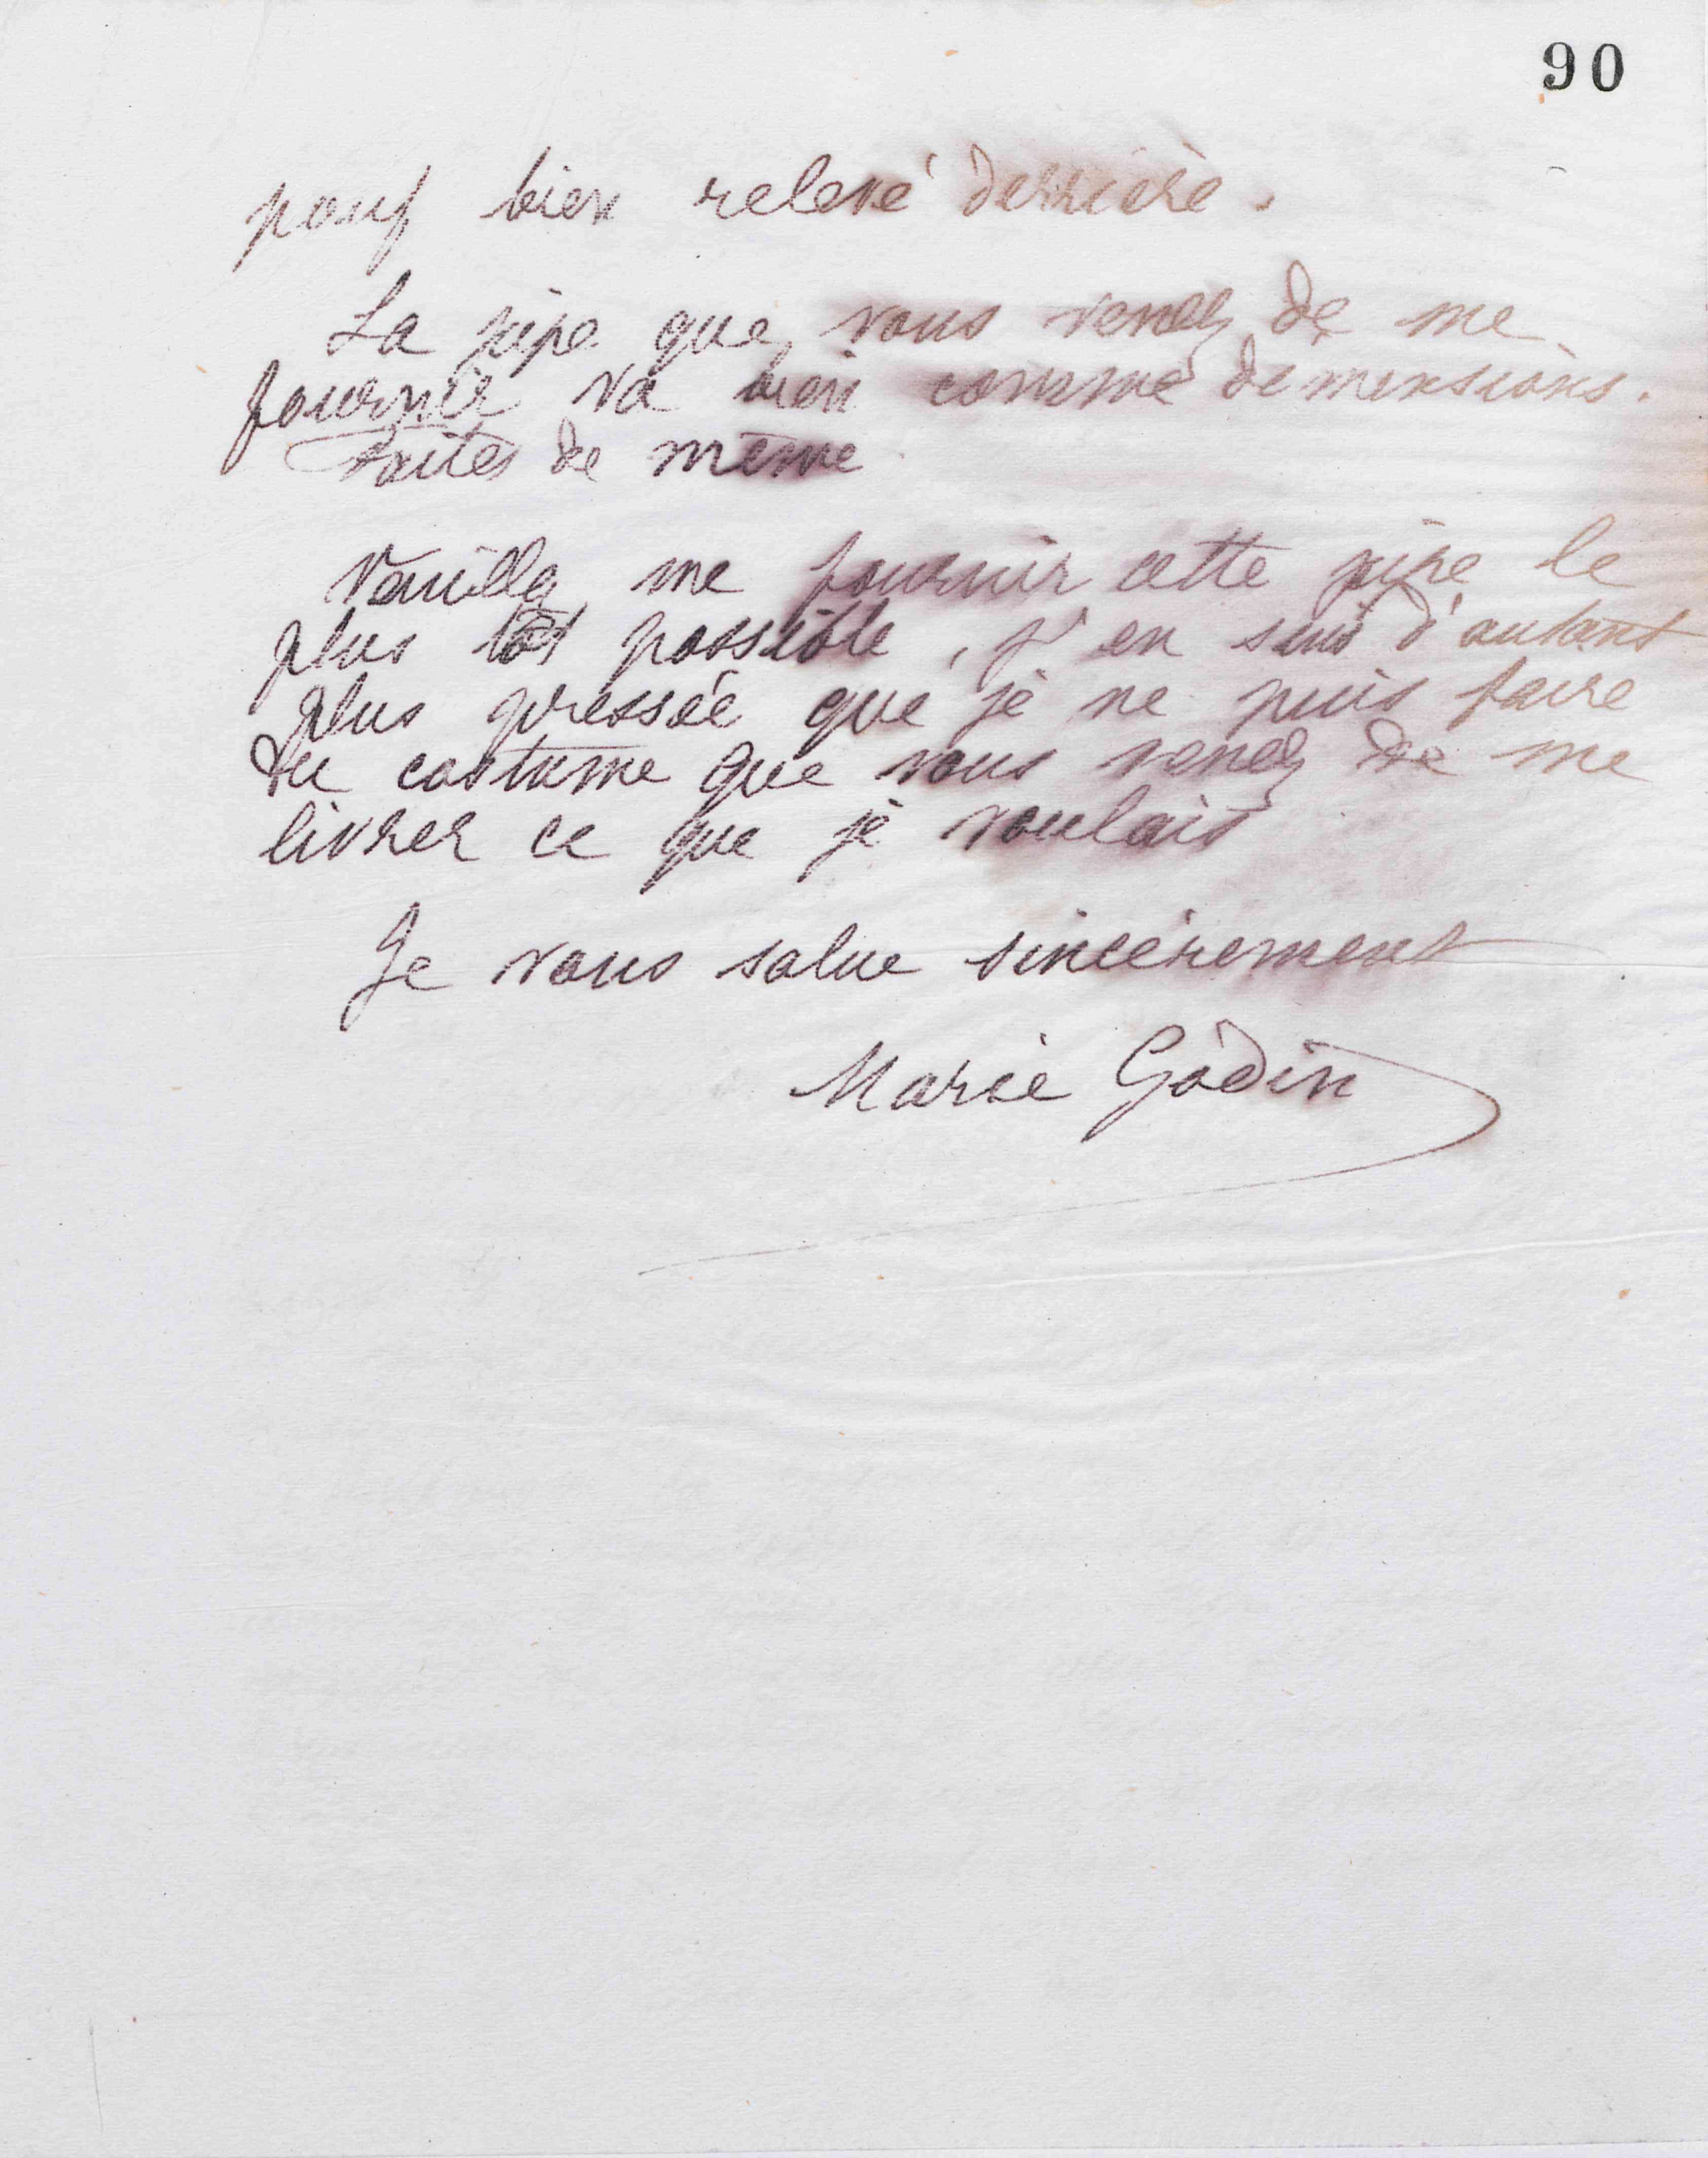 90
pouf bien relevé derrière.
La jupe que vous venez de me
fournir va bien comme dimensions.
Faites de même
Veuillez me fournir cette jupe le
plus tôt possible, j'en suis d'autant
plus pressée que je ne puis faire
du costume que vous venez de me
livrer ce que je voulais
Je vous salue sincèrement
Marie Godin